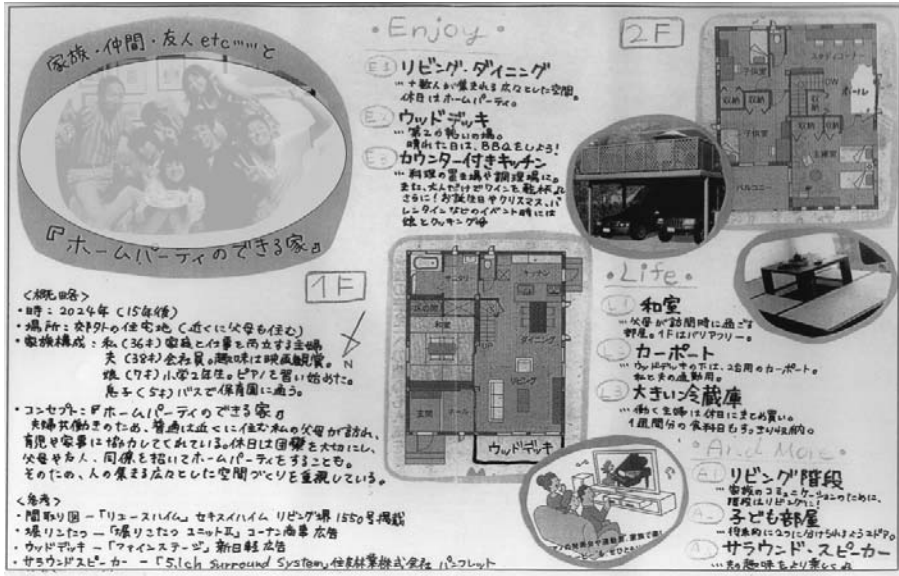 家族・仲間・友人etc……と
『ホームパーティのできる家』
<概略>
・時：2024年（15年後）
・場所：郊外の住宅地（近くに父母も住む）
・家族構成：私（36才）家族と仕事を両立する主婦
夫（38才）会社員。趣味は映画観賞。
娘（7才）小学2年生。ピアノを習い始めた。
息子（5才）バスで保育園に通う。
・コンセプト：『ホームパーティのできる家』
夫婦共働きのため、普通は近くに住む私の父母が訪れ、
育児や家事に協力してくれている。休日は団欒を大切にし、
父母や友人、同僚を招いてホームパーティをすることも。
そのため、人の集まる広々とした空間づくりを重視している。
<参考>
・間取り図－「リュースハイム」セキスイハイム リビング堺1550号掲載
・堀りごたつ－「堀りごたつ ユニットⅡ」コーナン商事 広告
・ウッドデッキ－「ファインステージ」新日軽 広告
・サラウンドスピーカー－「5.1ch Surround System」住友林業株式会社 パンフレット
・Enjoy・
E1 リビング・ダイニング
…十数人が集まれる広々とした空間。
休日はホームパーティ。
E2 ウッドデッキ
…第2の憩いの場。
晴れた日は、BBQをしよう！
E3 カウンター付きキッチン
…料理の置き場や調理場に。
また、大人だけでワインを乾杯♫
さらに！お誕生日やクリスマス、バ
レンタインなどのイベント時には
娘とクッキング
1F
N
サニタリー
キッチン
和室
UP
ダイニング
リビング
玄関
ホール
ウッドデッキ
2F
子供室
スタディコーナー
ホール
収納
収納
収納
収納
収納
子供室
主寝室
バルコニー
・Life・
L1 和室
…父母が訪問時に過ごす
部屋。1Fはバリアフリー。
L2 カーポート
…ウッドデッキの下は、2台用のカーポート。
私と夫の通勤用。
L3 大きい冷蔵庫
…働く主婦は休日にまとめ買い。
1週間分の食料品もすっきり収納。
・And More・
A1 リビング階段
…家族のコミュニケーションのために、
階段はリビングに！
A2 子ども部屋
…将来的に2つに分けられるようにドア2。
A3 サラウンド・スピーカー
…夫の趣味をより楽しく♫